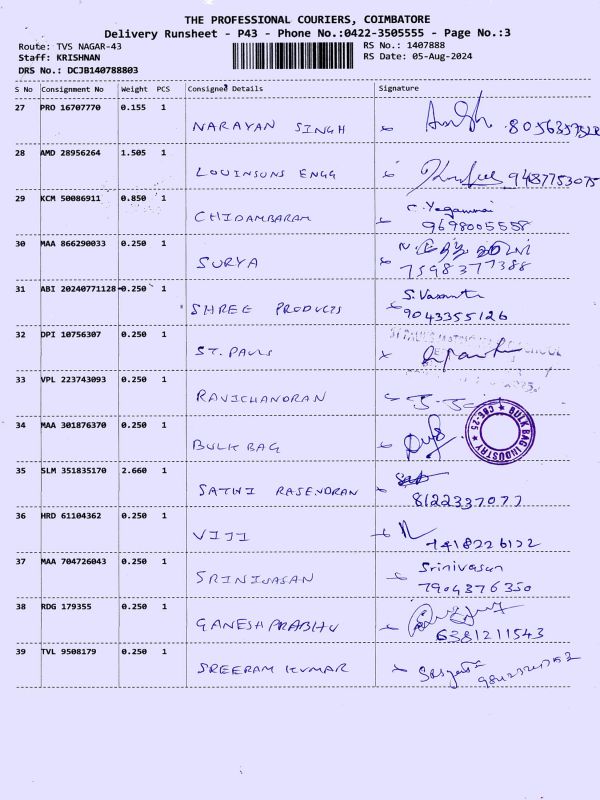 THE PROFESSIONAL COURIERS, COIMBATORE
Delivery Runsheet - P43 - Phone No.:0422-3505555 - Page No.:3
Route: TVS NAGAR-43 RS No.: 1407888
Staff: KRISHNAN RS Date: 05-Aug-2024
DRS No.: DCJB140788803
S No Consignment No Weight PCS Consigned Details Signature
27 PRO 16707770 0.155 1
NARAYAN SINGH
28 AMD 28956264 1.505 1
LOUINSONS ENGG 9487753075
29 KCM 50086911 0.850 1
CHIDAMBARAM
9698005558
30 MAA 866290033 0.250 1
SURYA 7598377388
31 ABI 20240771128 0.250 1 S. Vasanth
SHREE PRODUCTS 9043355126
32 DPI 10756307 0.250 1
ST. PAULS
33 VPL 223743093 0.250 1
RAVICHANDRAN
34 MAA 301876370 0.250 1
BULK BAG
BULK BAG INDUSTRY ★ CBE-25 ★
35 SLM 351835170 2.660 1
SATHI RASENDRAN 8122337077
36 HRD 61104362 0.250 1
VIJI 7418226122
37 MAA 704726043 0.250 1 Srinivasan
SRINIVASAN 7904376350
38 RDG 179355 0.250 1
GANESH PRABHU 6381211543
39 TVL 9508179 0.250 1
SREERAM KUMAR